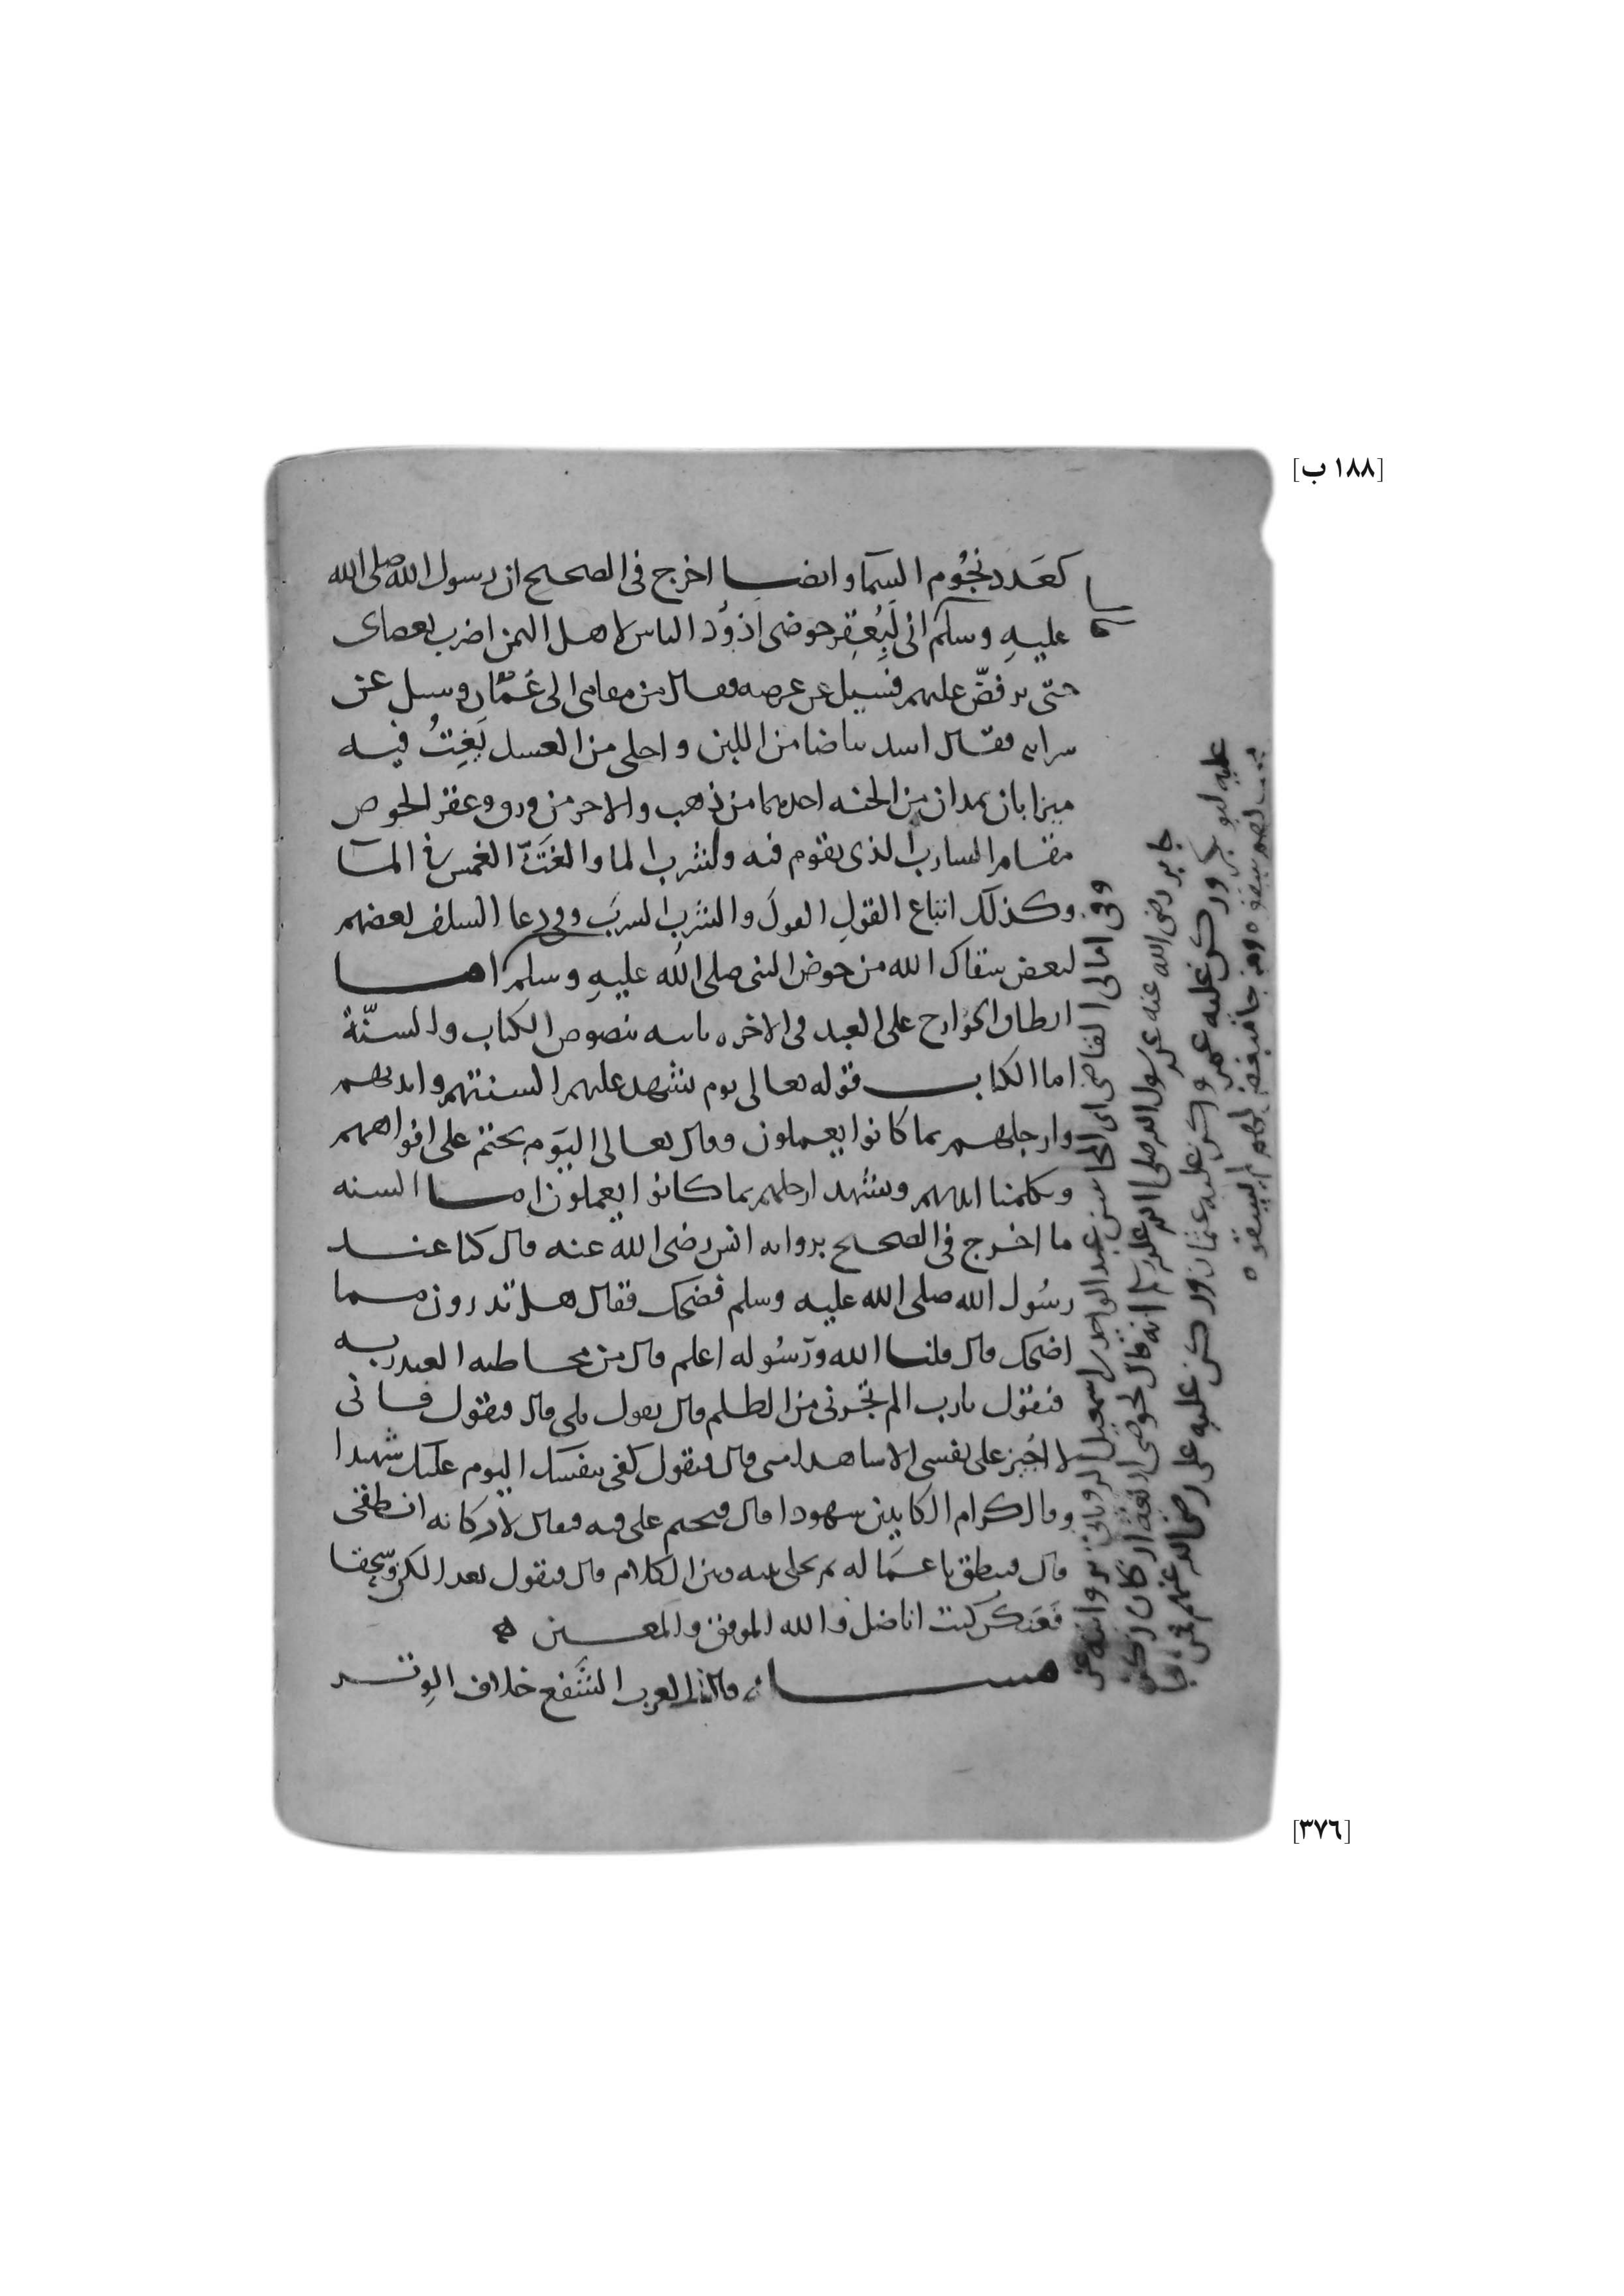 [١٨٨ ب]
كعدد نجوم السما وايضا اخرج في الصحيح ان رسول الله صلى الله
عليه وسلم اني لبعقر حوضي اذود الناس لاهل اليمن اضرب بعصاى
حتى يرفض عليهم فسيل عن عرضه فقال من مقامي الى عمان وسيل عن
شرابه فقال اشد بياضا من اللبن واحلى من العسل يغت فيه
ميزابان يمدانه من الجنه احدهما من ذهب والاخر من ورق وعقر الحوض
مقام الشارب الذى يقوم فيه ولشرب الما والغت الغمس في الما
وكذلك اتباع القول القول والشرب الشرب وفي دعا السلف بعضهم
لبعض سقاك الله من حوض النبي صلى الله عليه وسلم اما
انطاق الجوارح على العبد في الاخره ثابته بنصوص الكتاب والسنة
اما الكتاب قوله تعالى يوم تشهد عليهم السنتهم وايديهم
وارجلهم بما كانوا يعملون وقال تعالى اليوم نختم على افواههم
وتكلمنا ايديهم وتشهد ارجلهم بما كانوا يعملون اما السنه
ما اخرج في الصحيح بروايه انس رضى الله عنه قال كنا عند
رسول الله صلى الله عليه وسلم فضحك فقال هل تدرون مما
اضحك قال قلنا الله ورسوله اعلم قال من مخاطبه العبد ربه
فيقول يارب الم تجرنى من الظلم قال يقول بلى قال فيقول فانى
لا اجيز على نفسى الا شاهدا منى قال فيقول كفى بنفسك اليوم عليك شهيدا
وبالكرام الكاتبين شهودا قال فيختم على فيه فيقال لاركانه انطقى
قال فينطق باعماله ثم يخلى بينه وبين الكلام قال فيقول بعدا لكن وسحقا
فعنكن كنت اناضل والله الموفق والمعين
مسالة قالت العرب الشفع خلاف الوتر
وفي امالى القاضى ابى المحاسن عبد الواحد بن اسمعيل الرويانى بروايته عن
جابر رضى الله عنه عن رسول الله صلى الله عليه وسلم انه قال لحوضى اربعة اركان ركن
عليه ابو بكر وركن عليه عمر وركن عليه عثمان وركن عليه على رضى الله عنهم فمن جا
[٣٧٦]